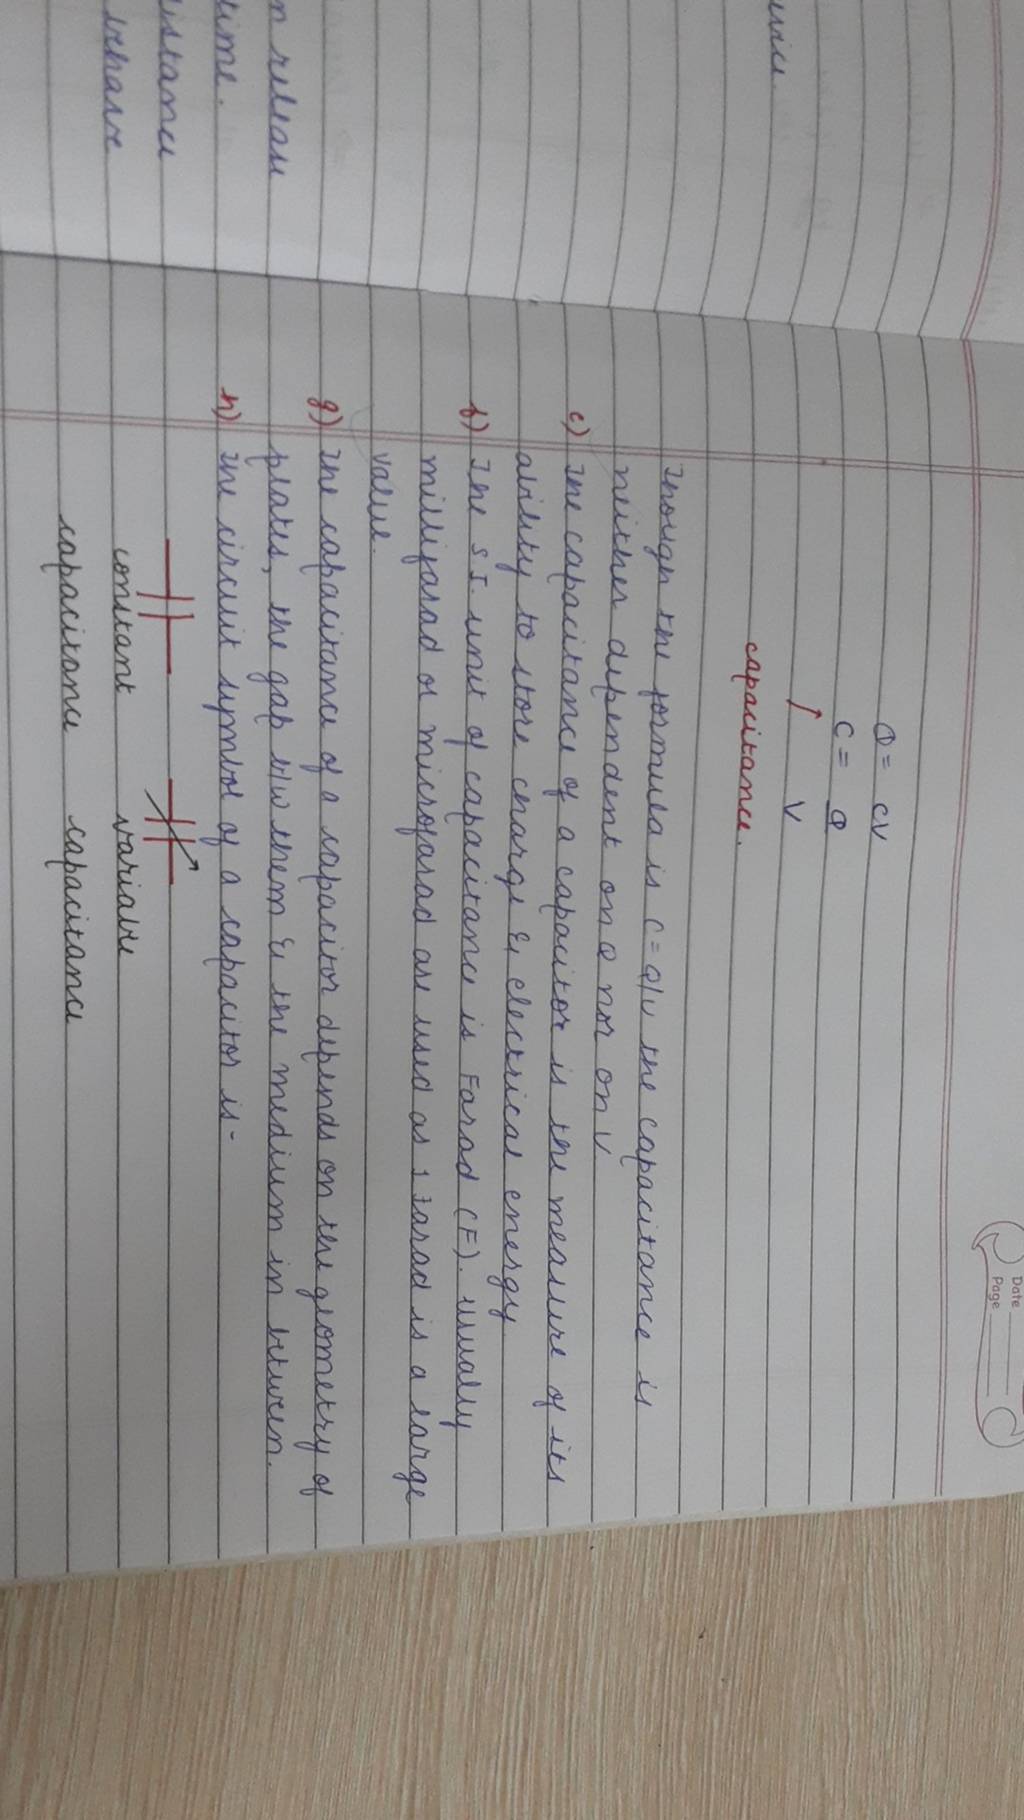 vice.
n release
time.
istance
Date
Page
Q = CV
C = Q
V
capacitance.
Though the formula is C = Q/V the capacitance is
neither dependent on Q nor on V
e) The capacitance of a capacitor is the measure of its
ability to store charge & electrical energy
f) The S.I. unit of capacitance is Farad (F). usually
millifarad or microfarad are used as 1 Farad is a large
value.
g) The capacitance of a capacitor depends on the geometry of
plates, the gap b/w them & the medium in between.
h) The circuit symbol of a capacitor is -
constant variable
capacitance capacitance